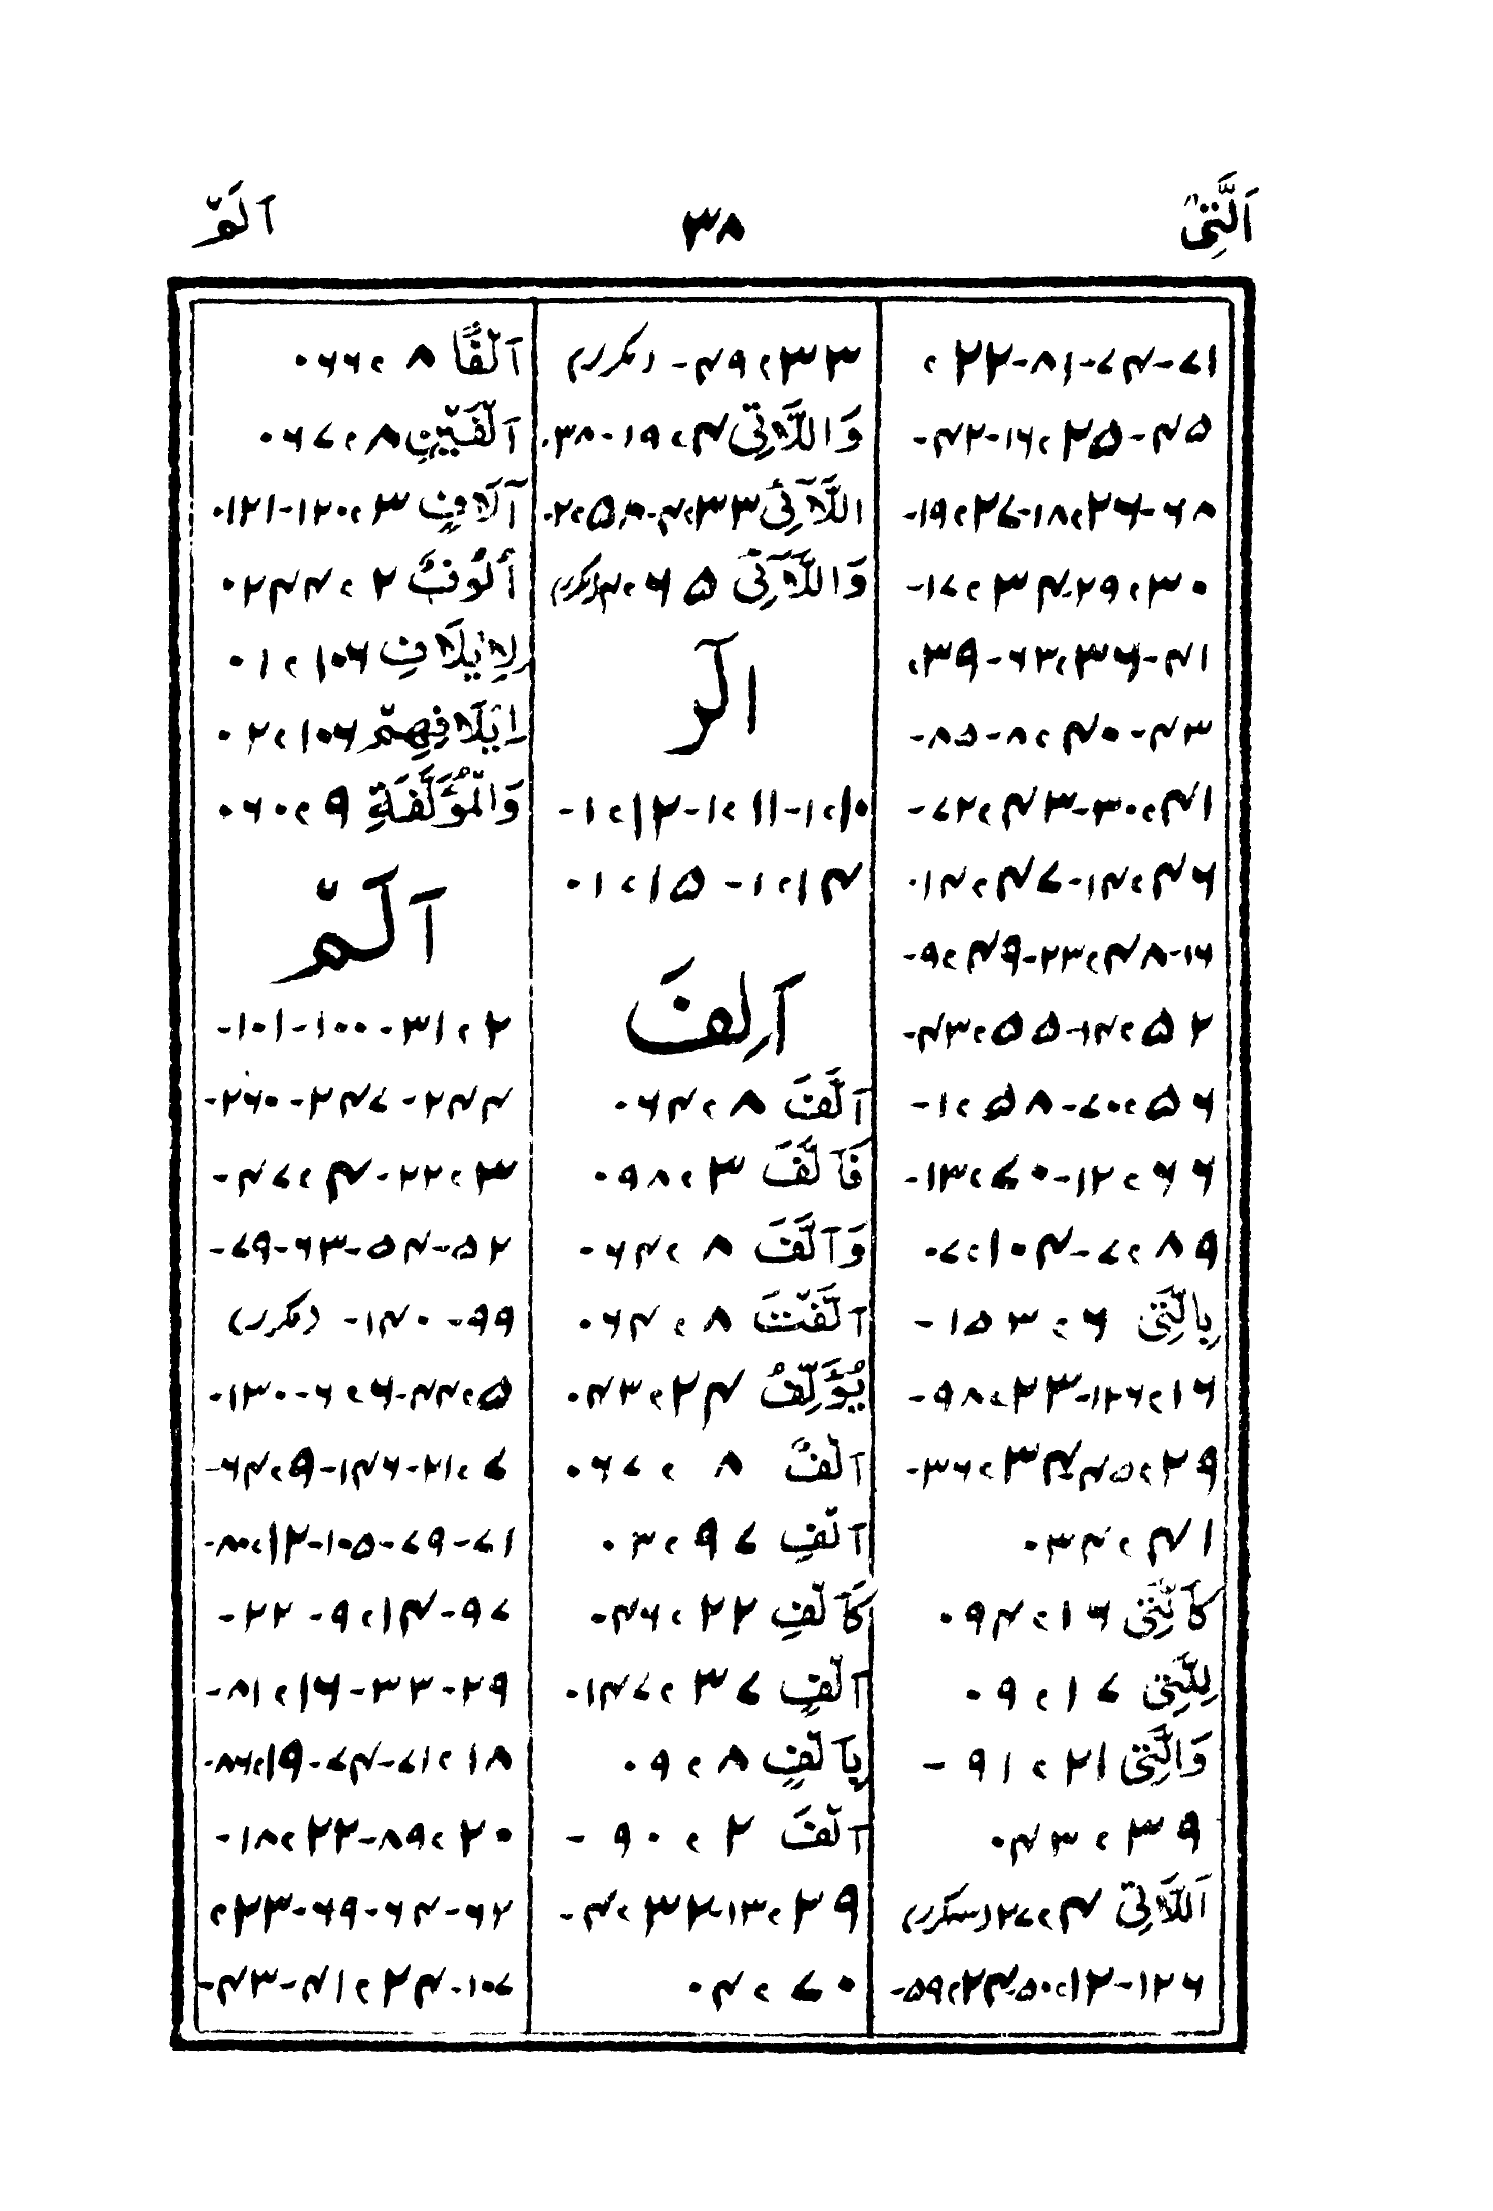 اَلَّتِیْ ۳۸ اَلَمْ
۷۱-۷۴-۸۱-۲۲،
۴۵-۲۵،۱۶-۴۲-
۶۸-۲۶،۱۸-۲۷،۱۹-
۳۰،۲۹-۳۴،۱۷-
۴۱-۳۶،۶۳-۳۹،
۴۳-۴۰،۸-۸۵-
۴۱،۳۰-۴۳،۷۲-
۴۶،۱۴-۴۷،۱۴۔
۱۶-۴۸،۲۳-۴۹،۹-
۵۲،۱۴-۵۵،۴۳-
۵۶،۷۰-۵۸،۱-
۶۶،۱۲-۷۰،۱۳-
۸۹،۷-۱۰۴،۷۔
بِالَّتِیْ ۶،۱۵۳-
۱۶،۱۲۶-۲۳،۹۸-
۲۹،۴۵-۳۴،۳۶-
۴۱،۳۴۔
کَالَّتِیْ ۱۶،۹۴۔
لِلَّتِیْ ۱۷،۹۔
وَالَّتِیْ ۲۱،۹۱-
۳۹،۴۳۔
اَللَّاتِیْ ۴،۲۷(سکرر)
۱۲۶-۱۲،۵۰-۲۴،۵۹-
۳۳،۴۹-(مکرر)
وَاللَّاتِیْ ۴،۱۹-۳۸۔
اللَّآئِیْ ۳۳،۴-۵۸،۲۔
وَاللَّآئِیْ ۶۵،۴(مکرر)
الٓرٰ
۱۰،۱-۱۱،۱-۱۲،۱-
۱۴،۱-۱۵،۱۔
اَلِفَ
اَلَّفَ ۸،۶۴۔
فَاَلَّفَ ۳،۹۸۔
وَاَلَّفَ ۸،۶۴۔
اَلَّفْتَ ۸،۶۴۔
یُؤَلِّفُ ۲۴،۴۳۔
اَلْفٌ ۸،۶۷۔
اَلْفِ ۹۷،۳۔
کَاَلْفِ ۲۲،۴۶۔
اَلْفٍ ۳۷،۱۴۷۔
بِاَلْفٍ ۸،۹۔
اَلْفَ ۲،۹۰-
۲۹،۱۳-۳۲،۴-
۷۰،۴۔
اَلْفًا ۸،۶۶۔
اَلْفَیْنِ ۸،۶۷۔
آلَافٍ ۳،۱۲۰-۱۲۱۔
اُلُوْفٌ ۲،۲۴۴۔
لِاِیْلَافِ ۱۰۶،۱۔
اِیْلَافِهِمْ ۱۰۶،۲۔
وَالْمُؤَلَّفَةِ ۹،۶۰۔
اَلَمْ
۲،۳۱-۱۰۰-۱۰۱-
۲۴۴-۲۴۷-۲۶۰-
۳،۲۲-۴،۴۷-
۵۲-۵۴-۶۳-۷۹-
۹۹-۱۴۰-(مکرر)
۵،۴۴-۶،۶-۱۳۰۔
۷،۲۱-۱۴۶-۹،۶۴-
۷۱-۷۹-۱۰۵-۱۲،۸۰-
۹۷-۱۴،۹-۲۲-
۲۹-۳۳-۱۶،۸۱-
۱۸،۷۱-۷۴-۱۹،۸۶-
۲۰،۸۹-۲۲،۱۸-
۶۲-۶۴-۶۹-۲۳،
۱۰۷-۲۴،۴۱-۴۳-